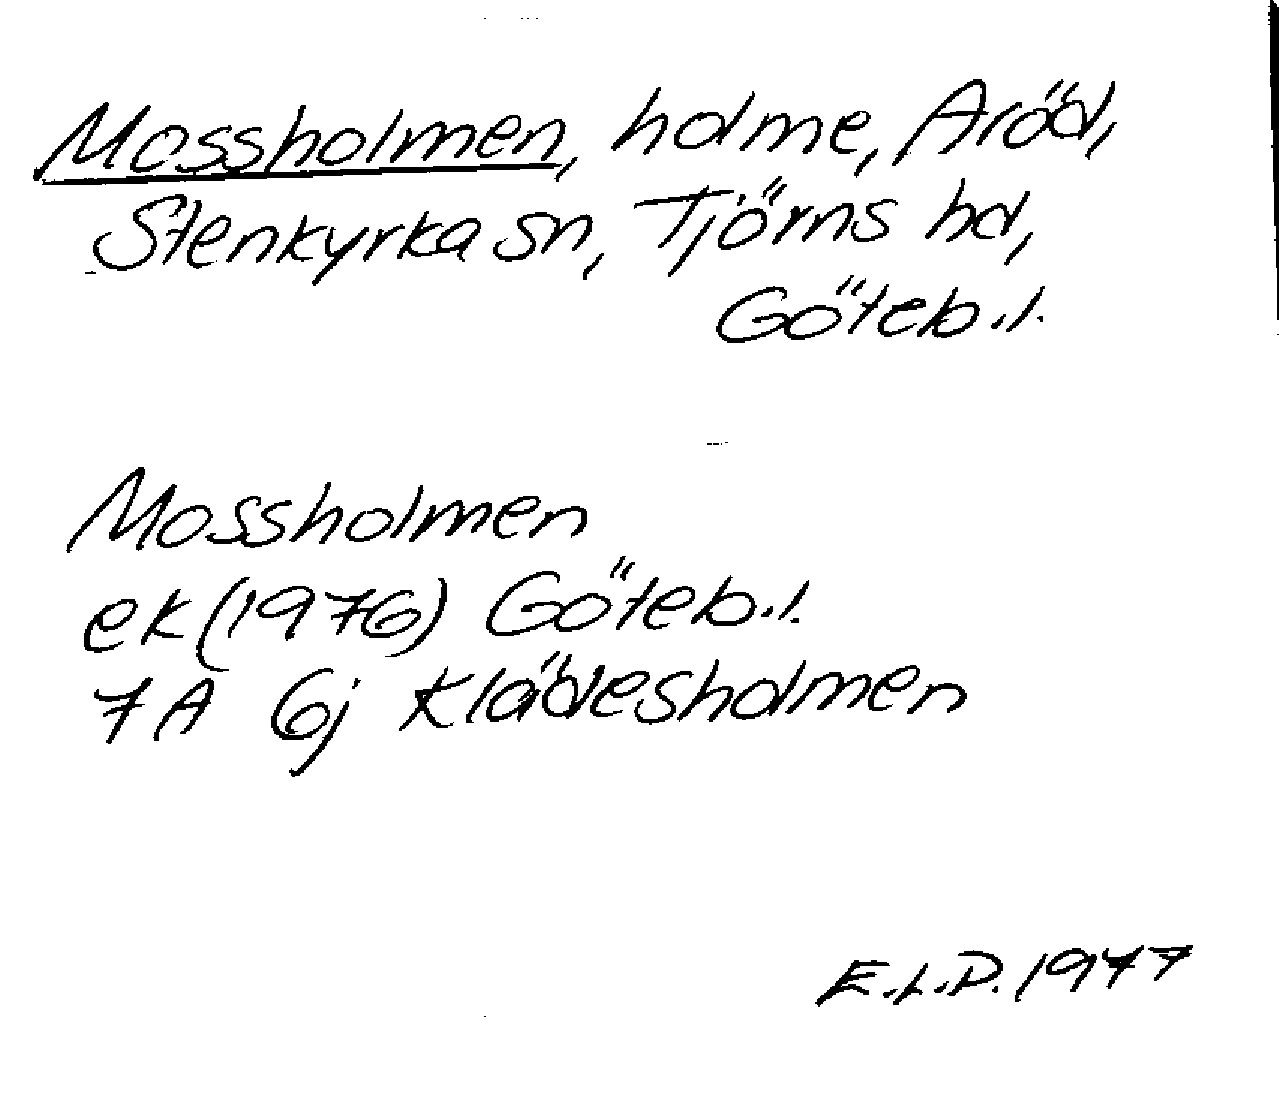 Mossholmen, holme, Aröd,
Stenkyrka sn, Tjörns hd,
Göteb.l.
Mossholmen
ek (1976) Göteb.l.
7A 6j Klädesholmen
E.L.D. 1977